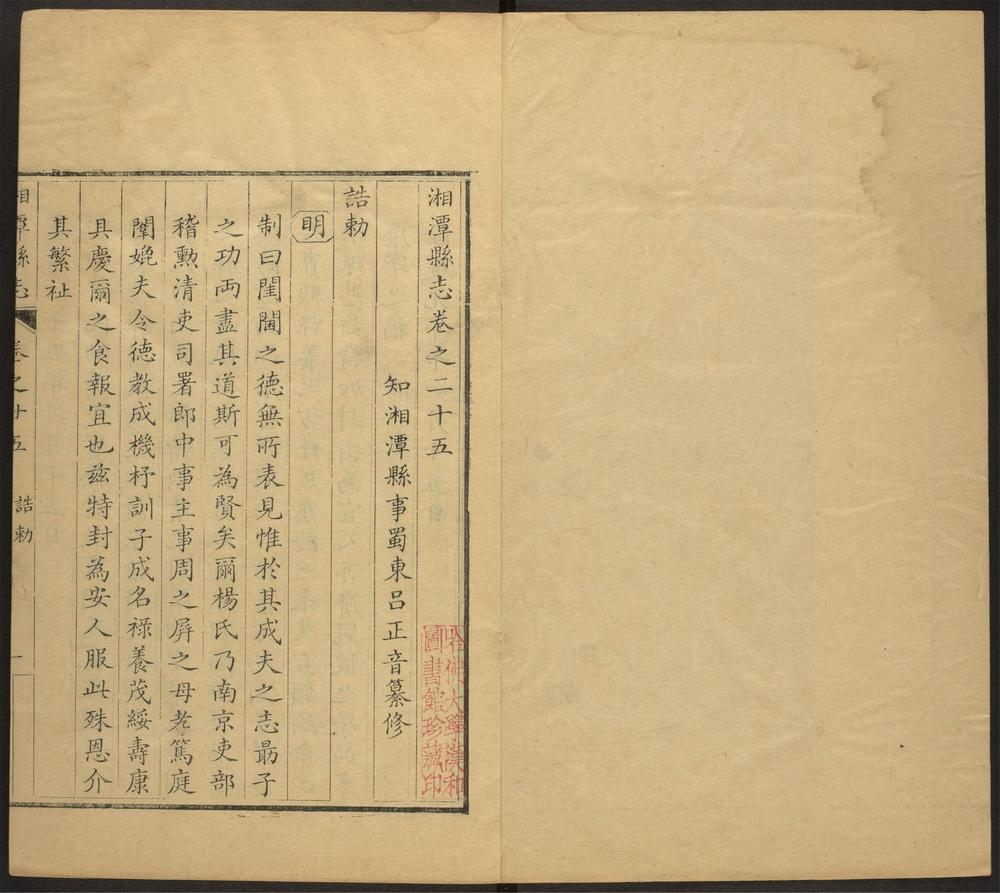 湘潭縣志卷之二十五
知湘潭縣事蜀東呂正音纂修
誥勅
明
制曰閨閫之德無所表見惟於其成夫之志勗子
之功兩盡其道斯可為賢矣爾楊氏乃南京吏部
稽勲清吏司署郎中事主事周之屏之母孝篤庭
闈娩夫令德教成機杼訓子成名祿養茂綏壽康
具慶爾之食報宜也兹特封為安人服此殊恩介
其繁祉
湘潭縣志 卷之十五 誥勅 一
哈佛大學漢和
圖書館珍藏印